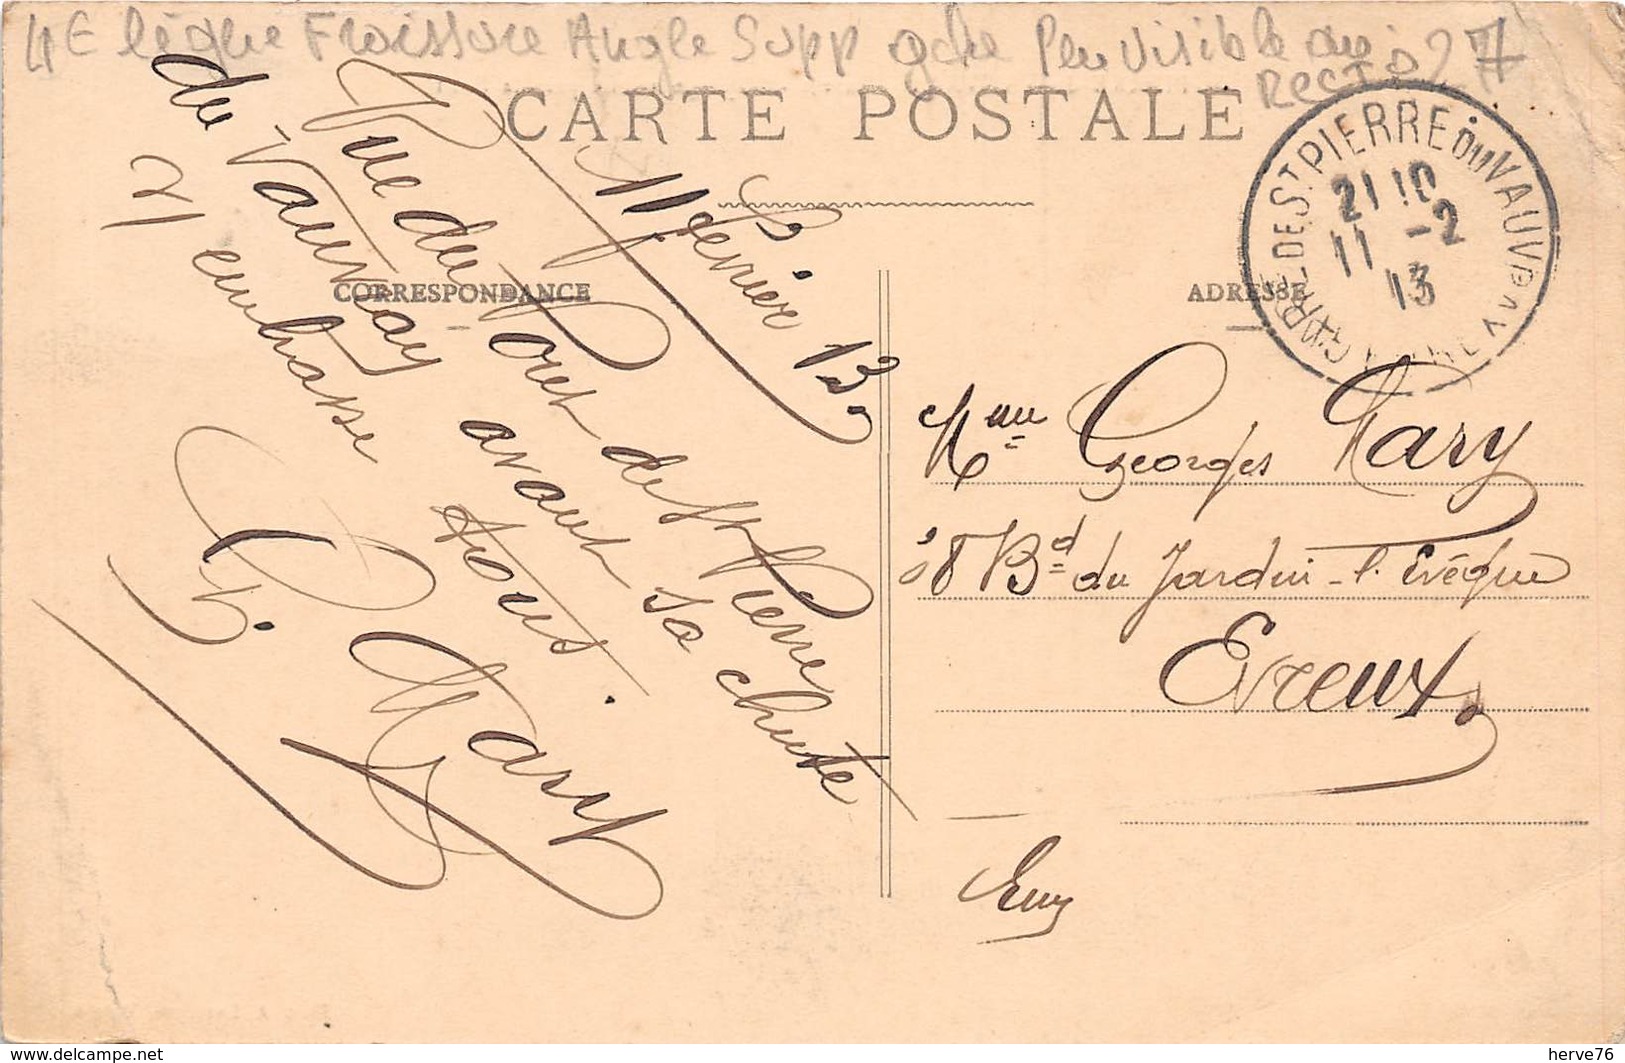 4E ligne Froissure Angle Supp gche Peu visible au
RECTO 27
CARTE POSTALE
CORRESPONDANCE
ADRESSE
GARE DE ST PIERRE DU VAUVRAY
21 10
11 -2
13
11 Février 13.
Vue du Pont de St Pierre
du Vauvray avant sa chute
J'embrasse tous.
G. Mary
Mme Georges Mary
8 Bd du Jardin-l'Evêque
Evreux.
Eure
delcampe.net
herve76